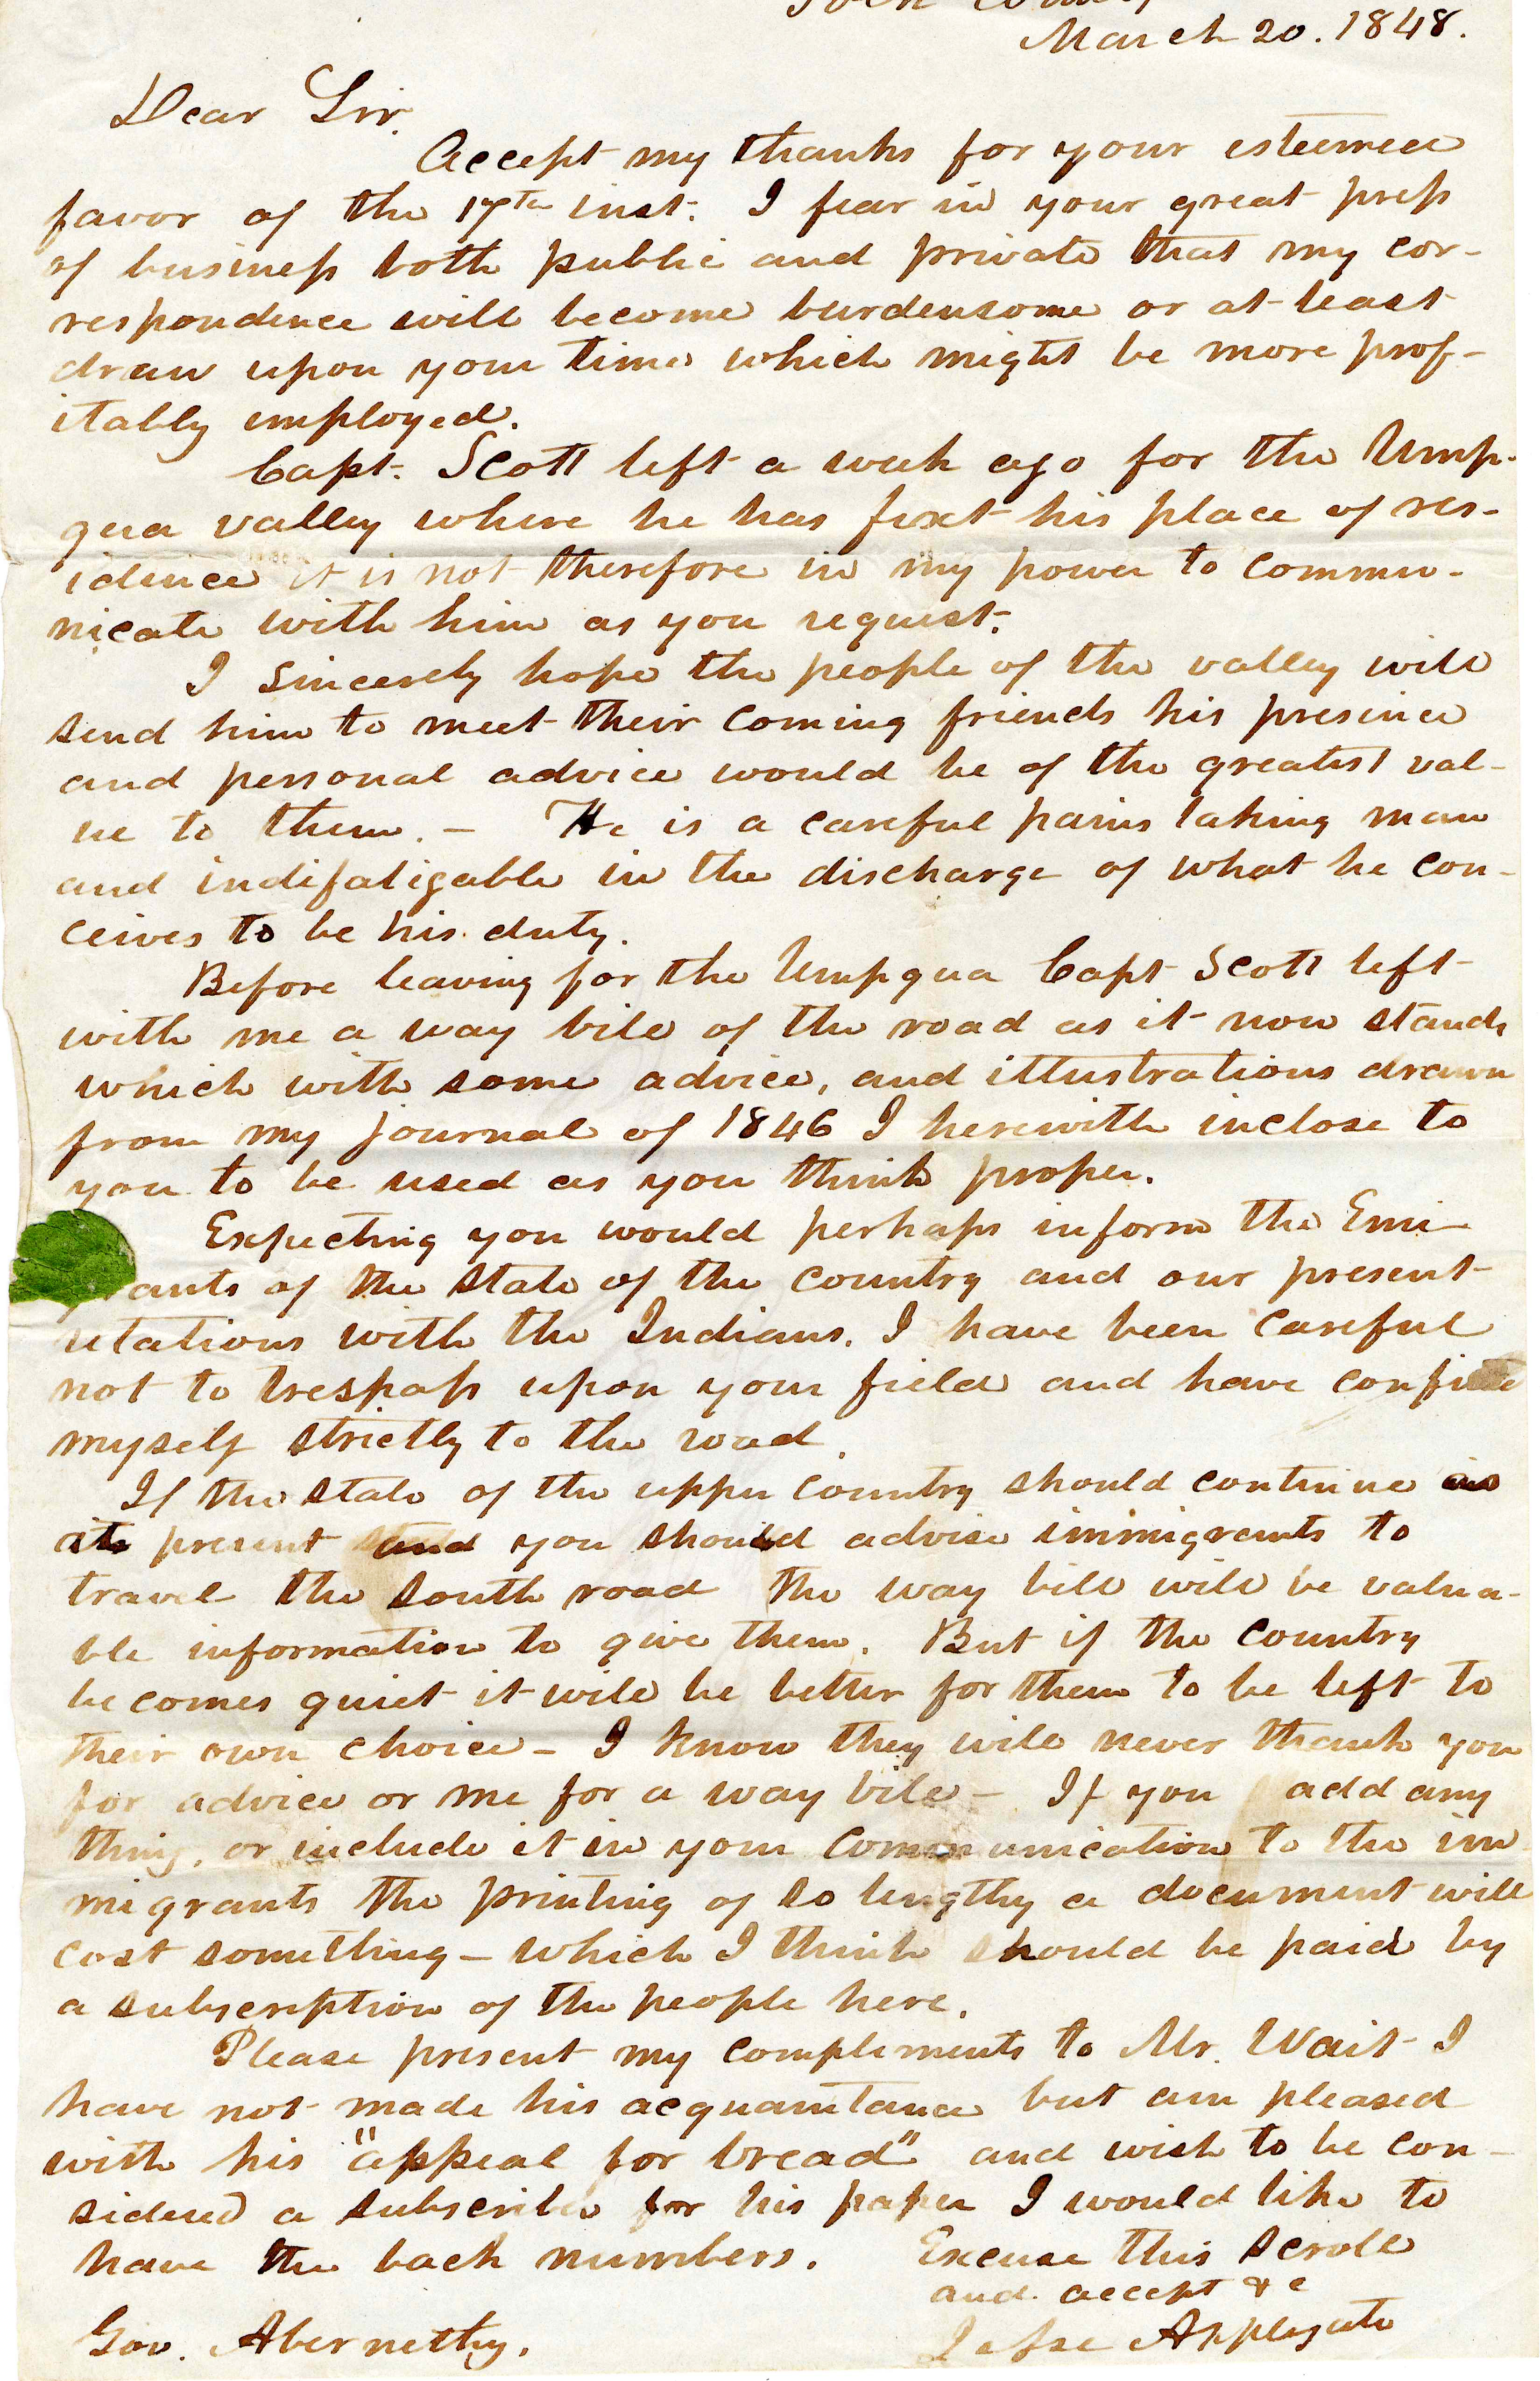 Polk County
March 20. 1848.
Dear Sir.
Accept my thanks for your esteemed
favor of the 17th inst. I fear in your great press
of business both public and private that my cor-
respondence will become burdensome or at least
draw upon your time which might be more prof-
itably employed.
Capt. Scott left a week ago for the Ump-
qua valley where he has fixt his place of res-
idence it is not therefore in my power to commu-
nicate with him as you request.
I sincerely hope the people of the valley will
send him to meet their coming friends his presence
and personal advice would be of the greatest val-
ue to them. – He is a careful pains taking man
and indefatigable in the discharge of what he con-
ceives to be his duty.
Before leaving for the Umpqua Capt Scott left
with me a way bill of the road as it now stands
which with some advice, and illustrations drawn
from my journal of 1846 I herewith inclose to
you to be used as you think proper.
Expecting you would perhaps inform the Emi-
ants of the state of the country and our present
relations with the Indians. I have been careful
not to trespass upon your field and have confined
myself strictly to the road.
If the state of the upper country should continue as
its present and you should advise immigrants to
travel the south road the way bill will be valua-
ble information to give them. But if the country
becomes quiet it will be better for them to be left to
their own choice – I know they will never thank you
for advice or me for a way bill – If you add any
thing, or include it in your communication to the im
migrants the printing of so lengthy a document will
cost something – which I think should be paid by
a subscription of the people here.
Please present my compliments to Mr. Wait I
have not made his acquaintance but am pleased
with his "appeal for bread" and wish to be con-
sidered a subscriber for his paper I would like to
have the back numbers. Excuse this scroll
and accept &c
Gov. Abernethy. Jesse Applegate